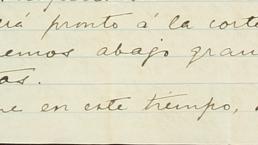 rá pronto á la corte
remos abajo gran
tos.
ne en este tiempo,